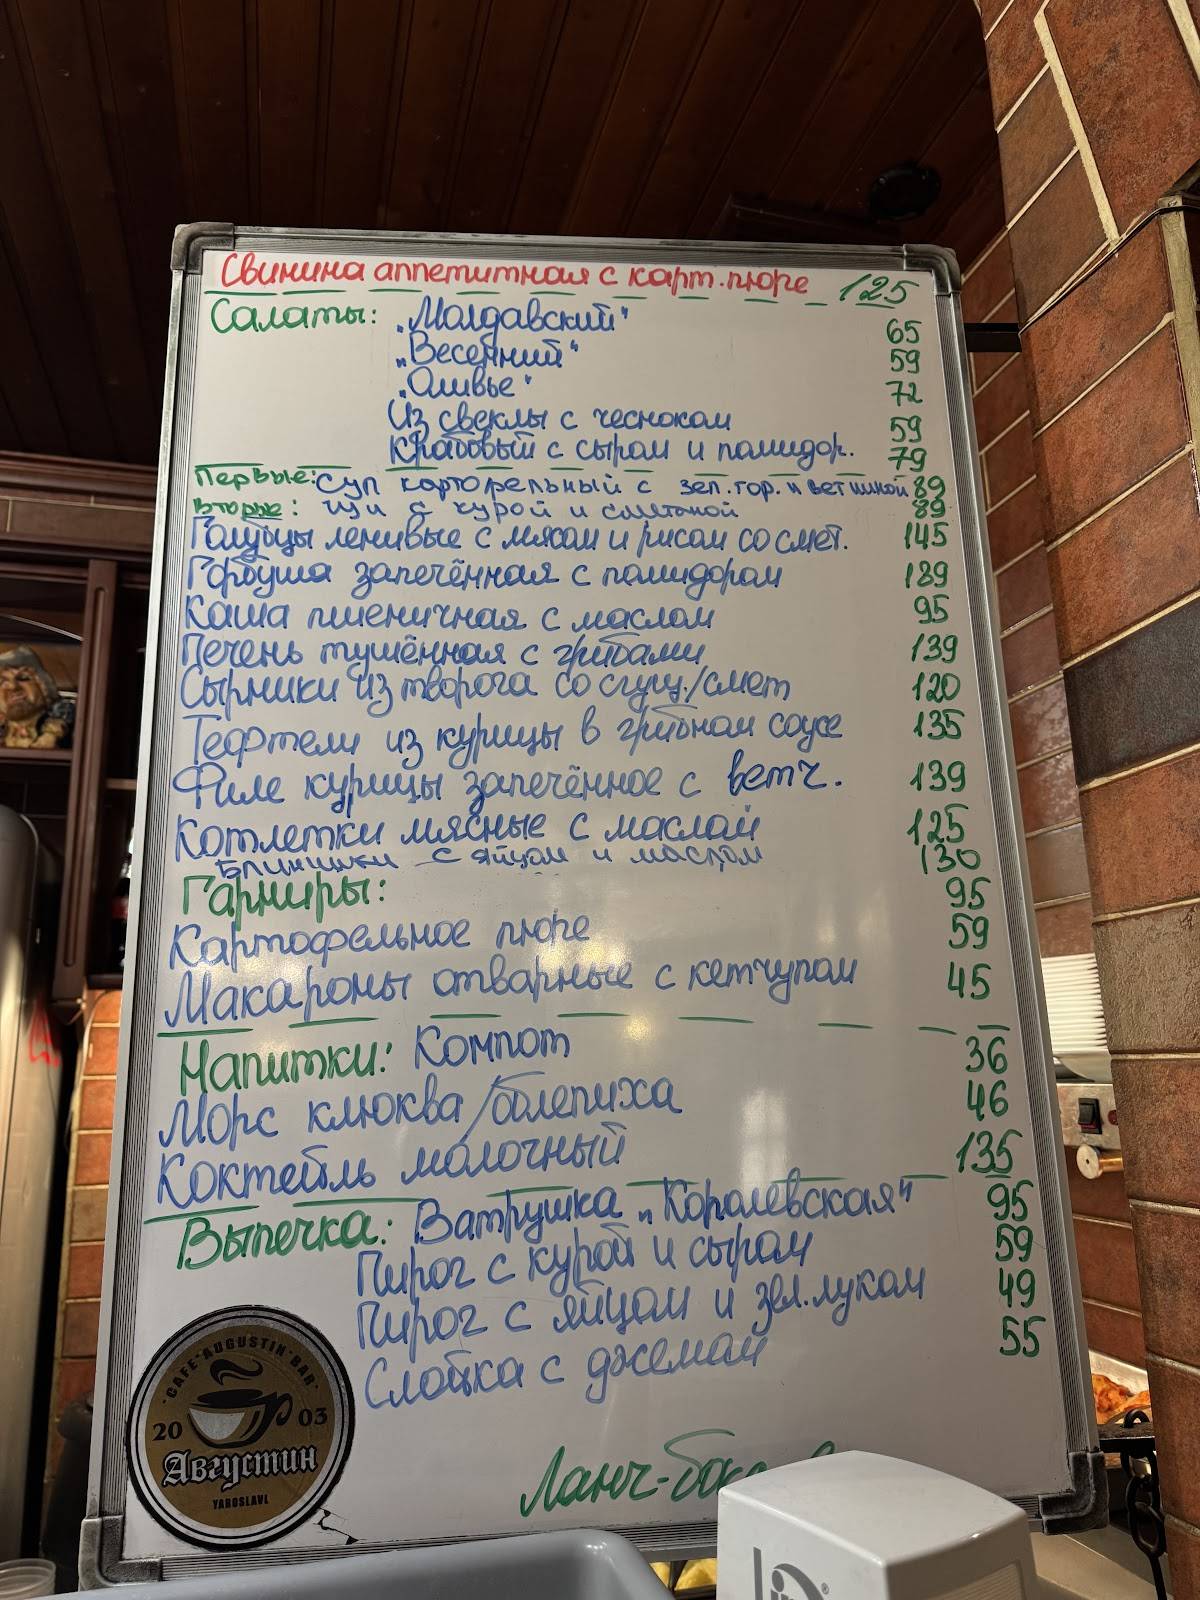 Свинина аппетитная с карт. пюре 125
Салаты: „Молдавский" 65
„Весенний" 59
„Оливье" 72
Из свеклы с чесноком 59
Крабовый с сыром и помидор. 79
Первые: Суп картофельный с зел. гор. и ветчиной 89
Вторые: Щи с курой и сметаной 89
Голубцы ленивые с мясом и рисом со смет. 145
Горбуша запечённая с помидором 189
Каша пшеничная с маслом 95
Печень тушённая с грибами 139
Сырники из творога со сгущ./смет 120
Тефтели из курицы в грибном соусе 135
Филе курицы запечённое с ветч. 139
Котлетки мясные с маслом 125
Блинчики с яйцом и маслом 130
Гарниры: 95
Картофельное пюре 59
Макароны отварные с кетчупом 45
Напитки: Компот 36
Морс клюква/облепиха 46
Коктейль молочный 135
Выпечка: Ватрушка „Королевская" 95
Пирог с курой и сыром 59
Пирог с яйцом и зел. луком 49
Слойка с джемом 55
Ланч-бокс
CAFE * AUGUSTIN * BAR
20 03
Августин
YAROSLAVL